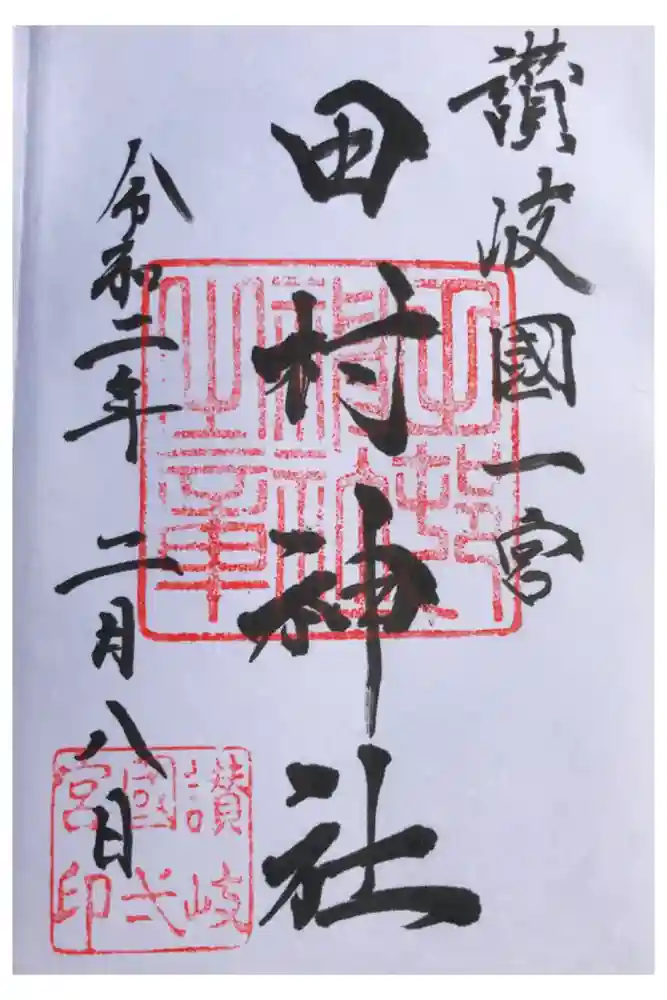 讃岐國一宮
田村神社
令和二年 二月八日
之章
讃岐
國弌
宮印